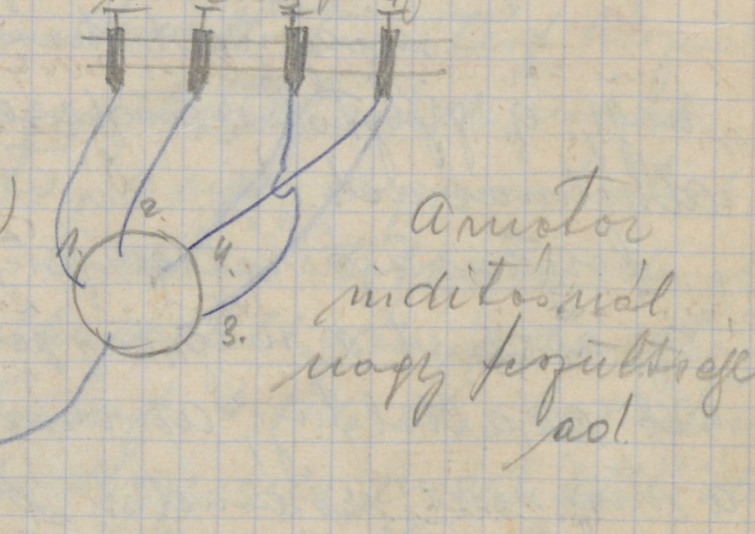 2.
1.
4.
3.
A motor
inditásnál
nagy feszültsége
ad